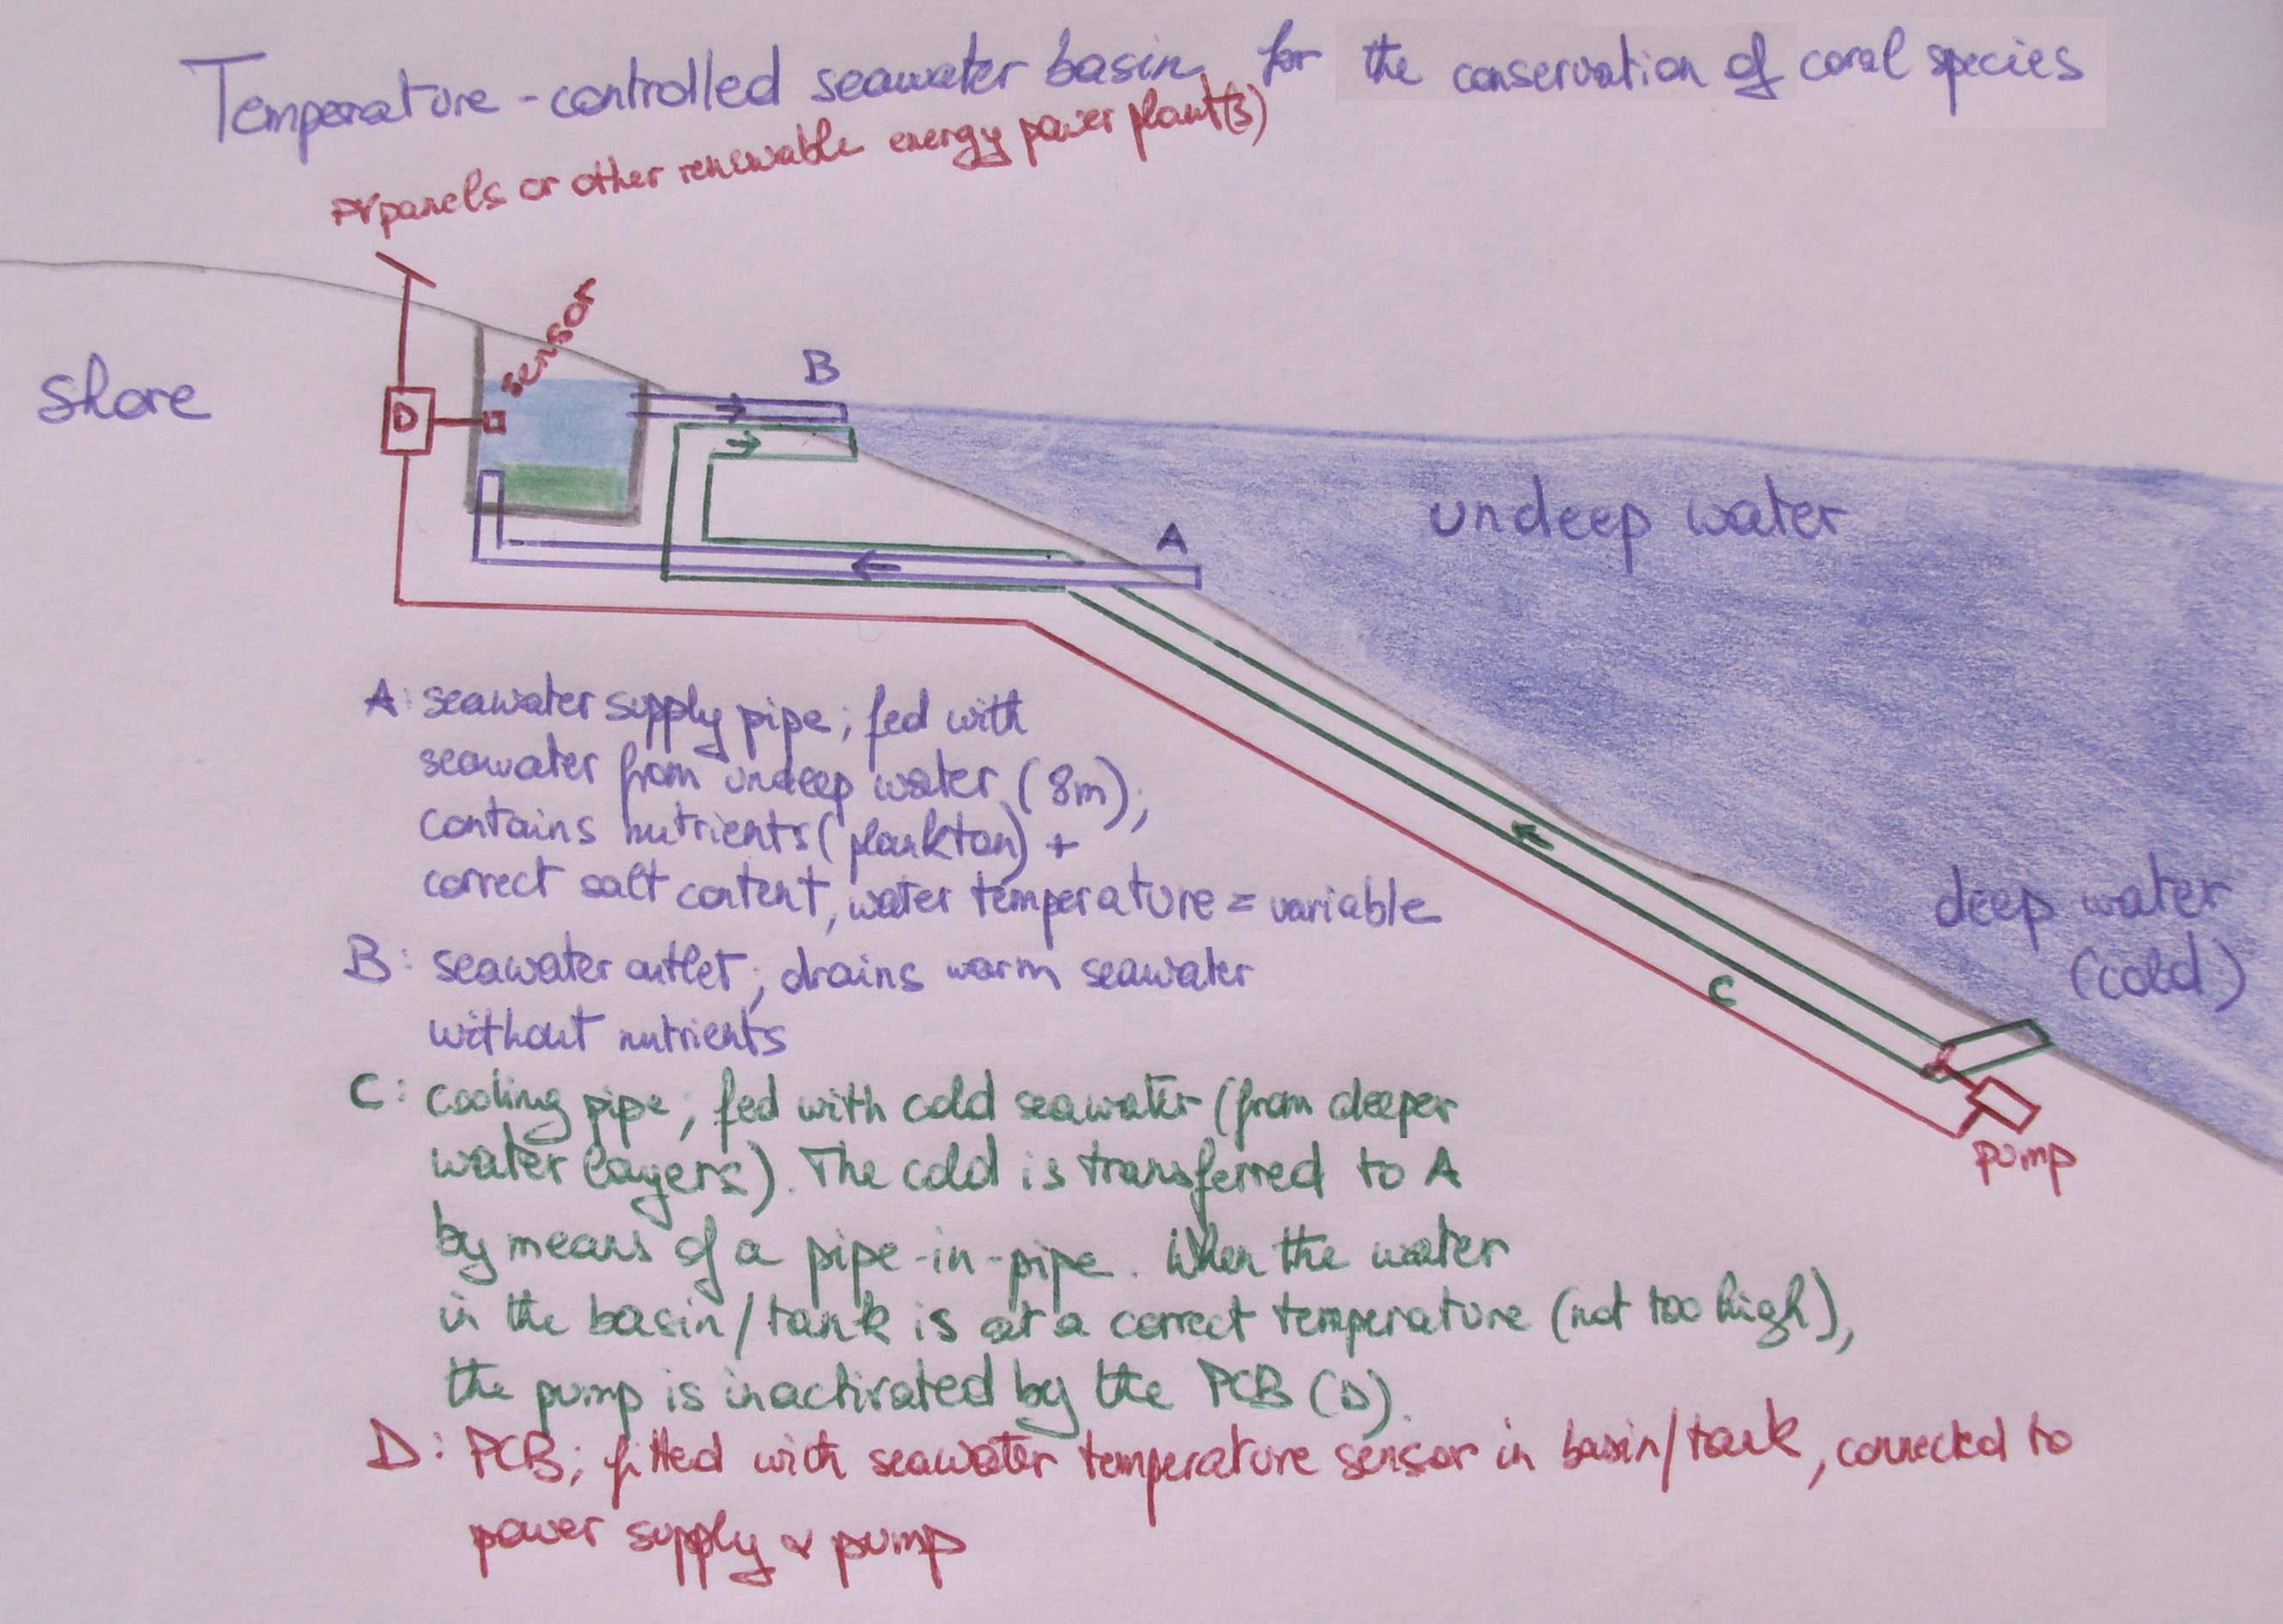 Temperature-controlled seawater basin for the conservation of coral species
PV panels or other renewable energy power plant(s)
sensor
shore
B
D
undeep water
A
A: seawater supply pipe; fed with
seawater from undeep water (8m);
contains nutrients (plankton) +
correct salt content, water temperature = variable
deep water
(cold)
B: seawater outlet; drains warm seawater
without nutrients
C
pump
C: cooling pipe; fed with cold seawater (from deeper
water layers). The cold is transferred to A
by means of a pipe-in-pipe. When the water
in the basin/tank is at a correct temperature (not too high),
the pump is inactivated by the PCB (D).
D: PCB; fitted with seawater temperature sensor in basin/tank, connected to
power supply & pump